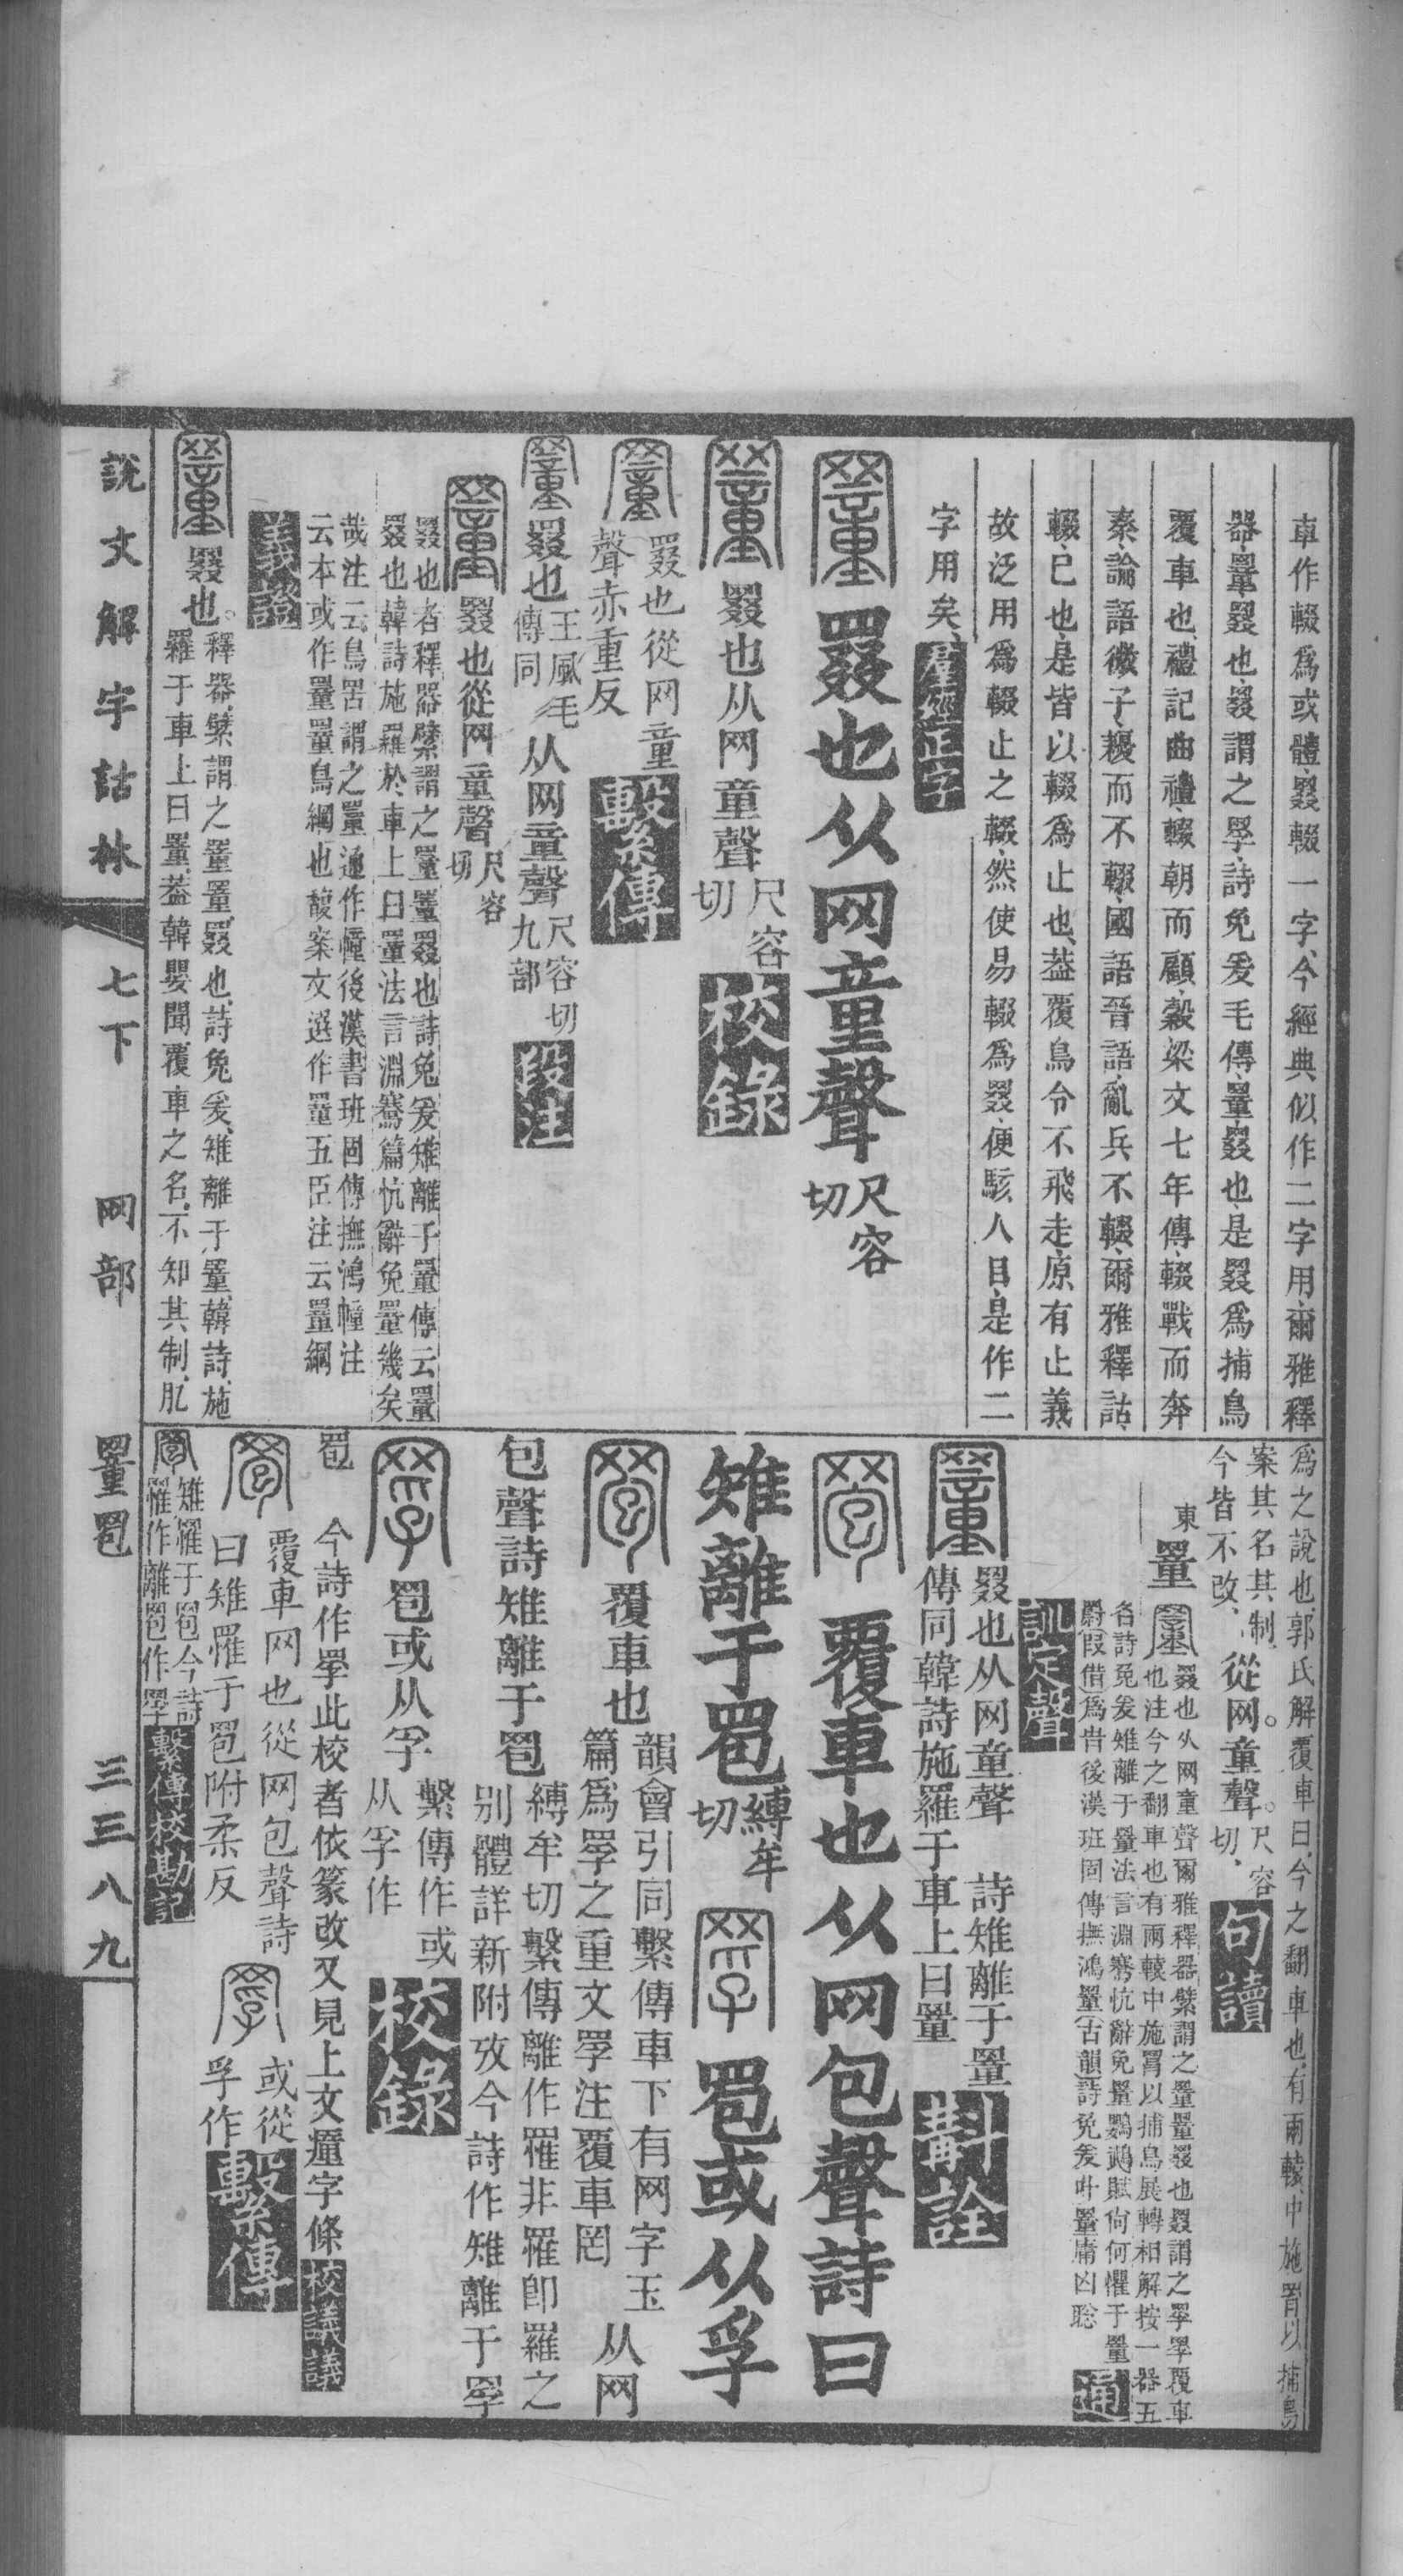 車作輟爲或體叕輟一字今經典似作二字用爾雅釋
器罿罬也罬謂之罦詩兔爰毛傳罿罬也是罬爲捕鳥
覆車也禮記曲禮輟朝而顧穀梁文七年傳輟戰而奔
秦論語微子耰而不輟國語晉語亂兵不輟爾雅釋詁
輟已也是皆以輟爲止也蓋覆鳥令不飛走原有止義
故泛用爲輟止之輟然使易輟爲罬便駭人目是作二
字用矣 羣經正字
罬也从网童聲 尺容切
罬也从网童聲 尺容切 校錄
罬也從网童聲赤重反 繫傳
罬也 王風毛傳同 从网童聲 尺容切九部 段注
罬也從网童聲 尺容切
罬也者釋器繴謂之罿罿罬也詩兔爰雉離于罿傳云罿
罬也韓詩施羅於車上曰罿法言淵騫篇忼辭免罿幾矣
哉注云鳥罟謂之罿通作幢後漢書班固傳撫鴻幢注
云本或作罿罿鳥綱也馥案文選作罿五臣注云罿綱
義證
罬也 釋器繴謂之罿罿罬也詩兔爰雉離于罿韓詩施
羅于車上曰罿蓋韓嬰聞覆車之名不知其制肊
爲之說也郭氏解覆車曰今之翻車也有兩轅中施罥以捕鳥
案其名其制今皆不改 從网童聲 尺容切 句讀
東 罿 罬也从网童聲爾雅釋器繴謂之罿罿罬也罬謂之罦罦覆車
也注今之翻車也有兩轅中施罥以捕鳥展轉相解按一器五
名詩兔爰雉離于罿法言淵騫忼辭免罿鸚鵡賦何何懼于罿 通
尉 假借爲 後漢班固傳撫鴻罿 古韻 詩兔爰叶罿庸凶聡
訓定聲
罬也从网童聲 詩雉離于罿
傳同韓詩施羅于車上曰罿 斠詮
覆車也从网包聲詩曰
雉離于罞 縛牟切 罞或从孚
覆車也 韻會引同繫傳車下有网字玉
篇爲罦之重文罦注覆車罔 从网
包聲詩雉離于 縛牟切繫傳離作罹非罹卽羅之
別體詳新附攷今詩作雉離于罦
或从孚 繫傳作或从孚作 校錄
今詩作罦此校者依篆改又見上文 字條 校議議
覆車网也從网包聲詩
曰雉罹于 附柔反 或從孚作 繫傳
雉罹于 今詩
罹作離 作罦 繫傳校勘記
說文解字詁林 七下 网部 罿 三三八九